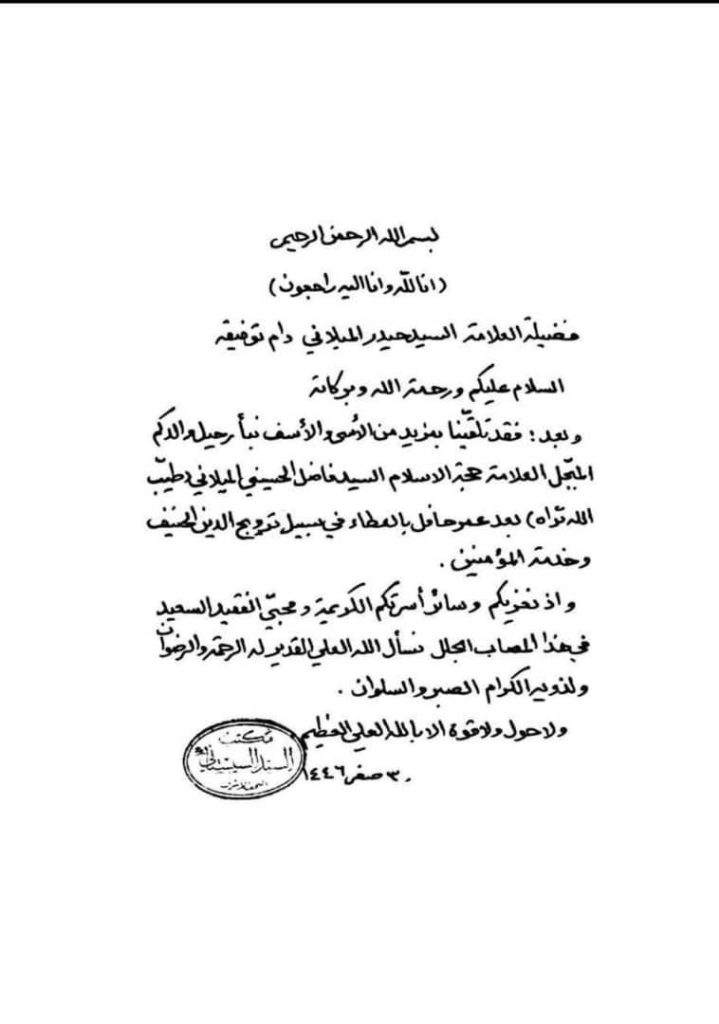 بسم الله الرحمن الرحيم
(انا لله وانا اليه راجعون)
فضيلة العلامة السيد حيدر الميلاني دام توفيقه
السلام عليكم ورحمة الله وبركاته
وبعد؛ فقد تلقّينا بمزيد من الأسى والأسف نبأ رحيل والدكم
المبجّل العلامة حجة الاسلام السيد فاضل الحسيني الميلاني (طيّب
الله ثراه) بعد عمر حافل بالعطاء في سبيل ترويج الدين الحنيف
وخدمة المؤمنين.
واذ نعزيكم وسائر أسرتكم الكريمة ومحبّي الفقيد السعيد
في هذا المصاب الجلل نسأل الله العلي القدير له الرحمة والرضوان
ولذويه الكرام الصبر والسلوان.
ولا حول ولا قوة الا بالله العلي العظيم
٣٠ صفر ١٤٤٦
مكتب
السيد السيستاني
النجف الاشرف